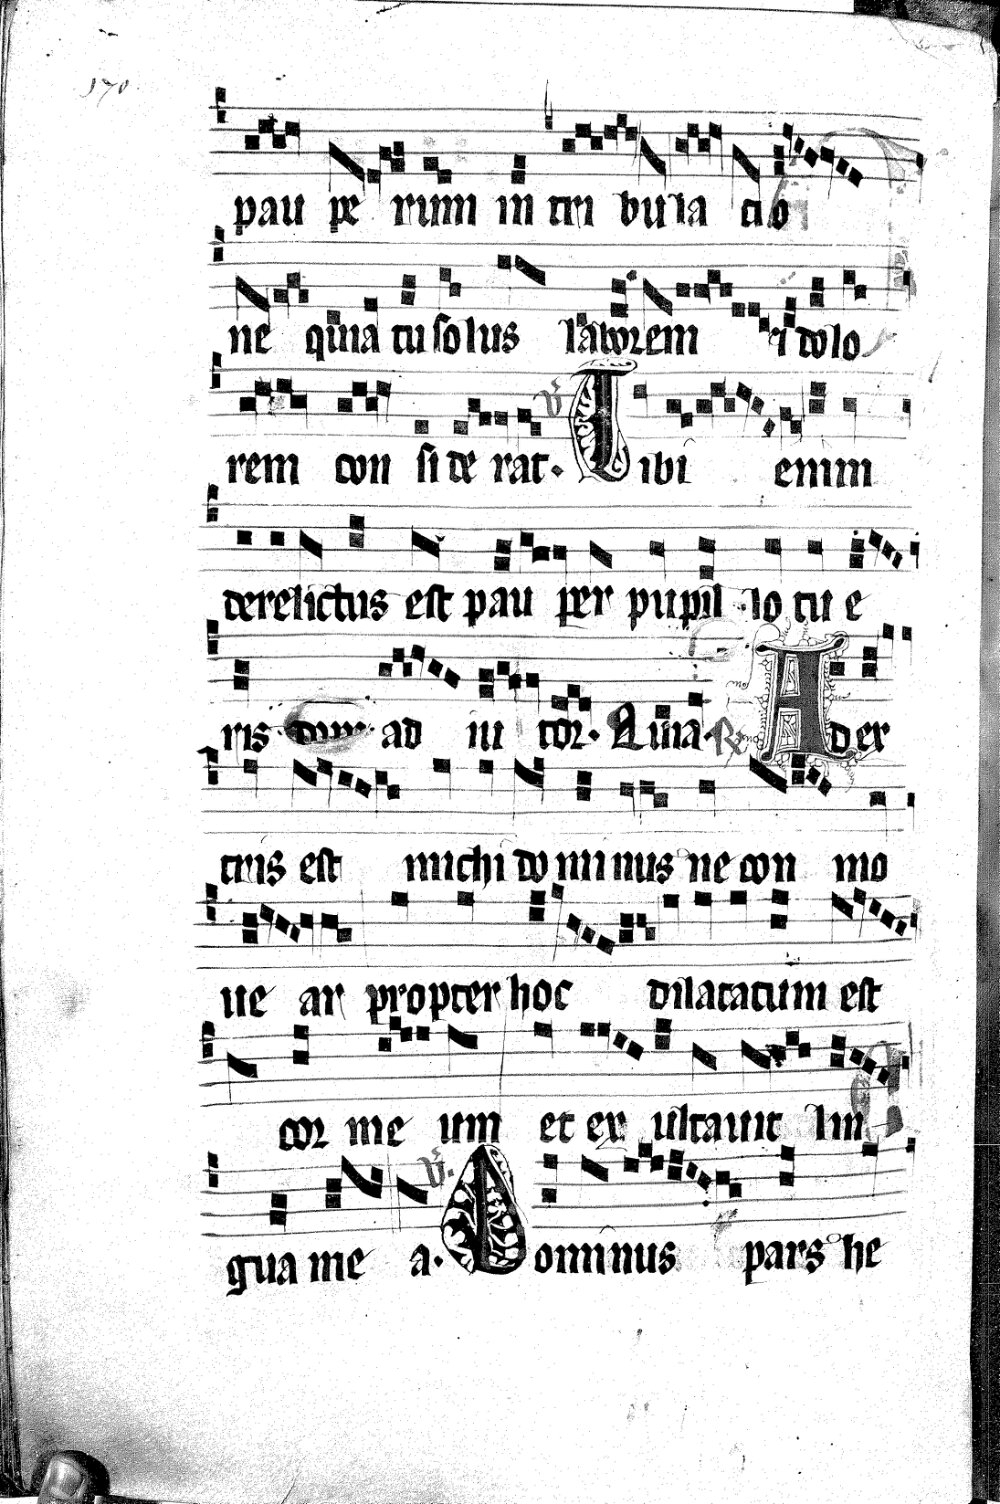 170
pau pe rum in tri bu la tio
ne quia tu solus laborem i dolo
rem con si de rat. V Tibi enim
derelictus est pau per pupil lo tu e
ris ad iu tor. Quia. R A dex
tris est michi do mi nus ne con mo
ue ar propter hoc dilatatum est
cor me um et ex ultauit lin
gua me a. V Dominus pars he